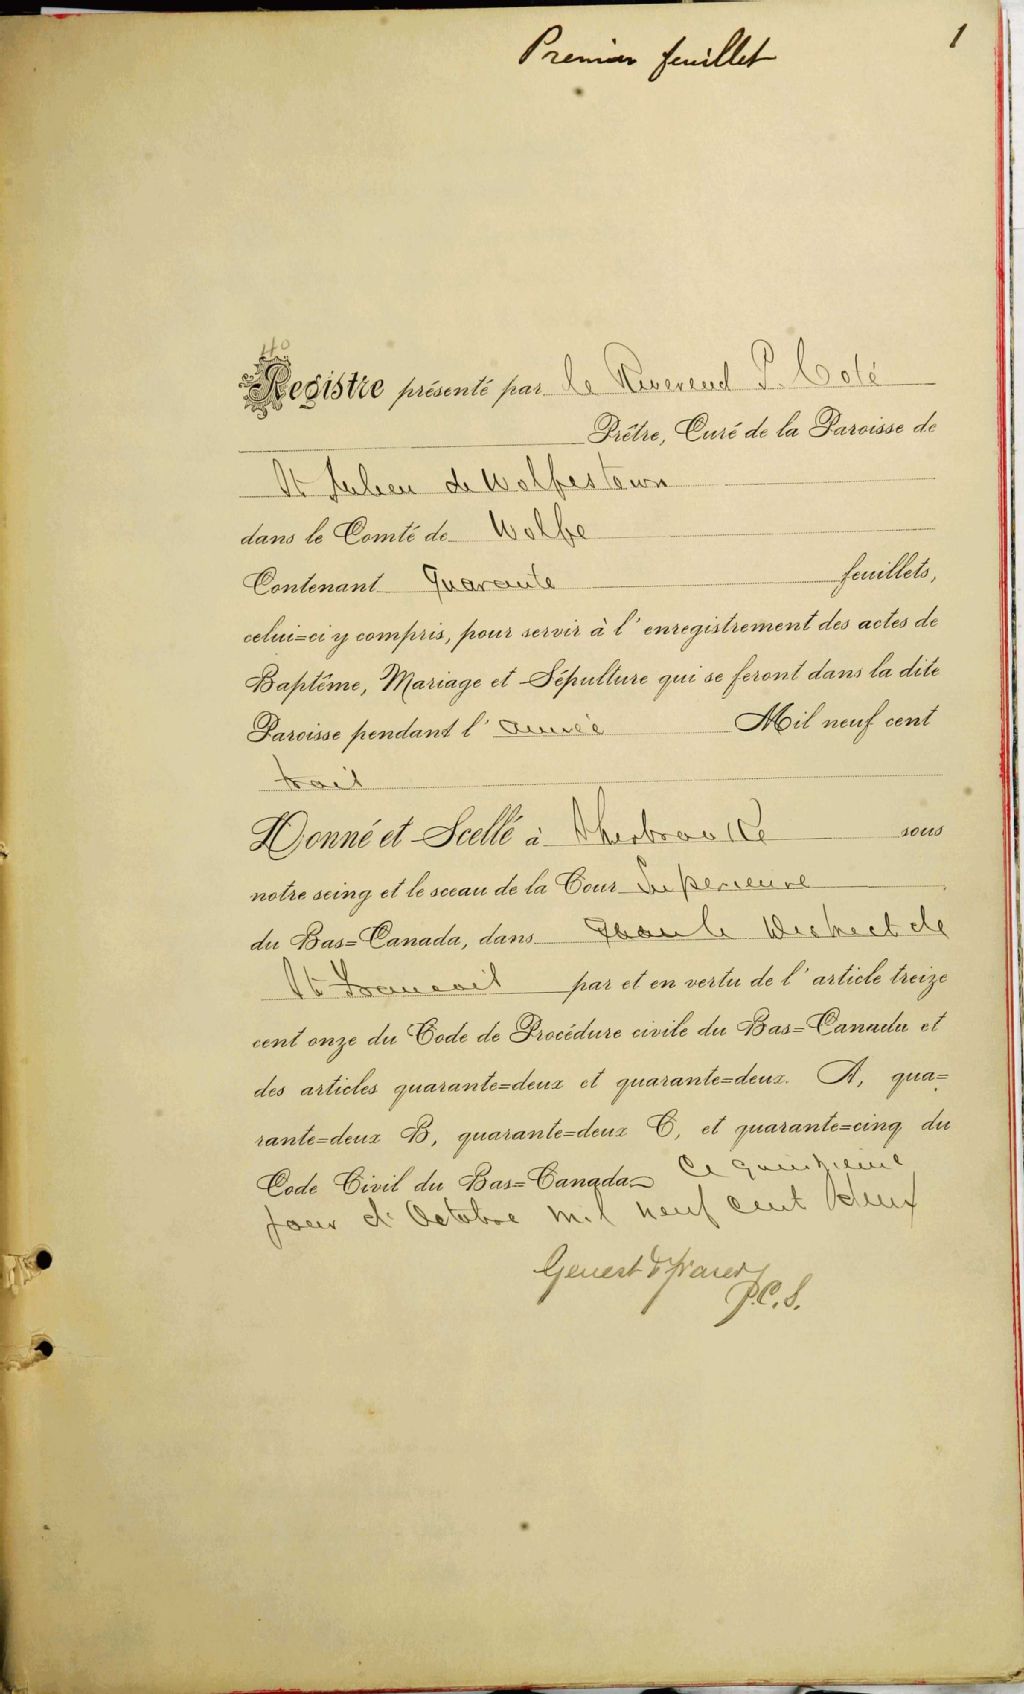 Premier feuillet
1
40
Registre présenté par le Reverend P. Coté
Prêtre, Curé de la Paroisse de
St Julien de Wolfestown
dans le Comté de Wolfe
Contenant Quarante feuillets,
celui=ci y compris, pour servir à l'enregistrement des actes de
Baptême, Mariage et Sépulture qui se feront dans la dite
Paroisse pendant l'année Mil neuf cent
trois
Donné et Scellé à Sherbrooke sous
notre seing et le sceau de la Cour Superieure
du Bas=Canada, dans le District de
St Francois par et en vertu de l'article treize
cent onze du Code de Procédure civile du Bas=Canada et
des articles quarante=deux et quarante=deux. A, qua=
rante=deux B, quarante=deux C, et quarante=cinq du
Code Civil du Bas=Canada Ce quinzieme
jour d' Octobre mil neuf cent deux
Genest & Fraser
P.C.S.